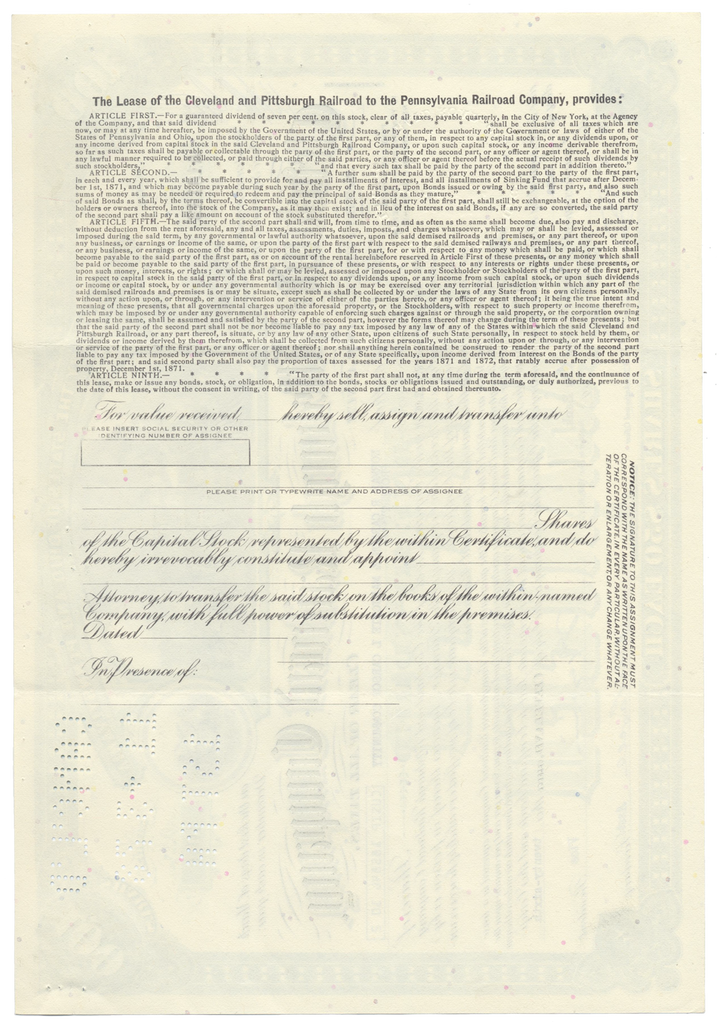 The Lease of the Cleveland and Pittsburgh Railroad to the Pennsylvania Railroad Company, provides:
ARTICLE FIRST.—For a guaranteed dividend of seven per cent. on this stock, clear of all taxes, payable quarterly, in the City of New York, at the Agency
of the Company, and that said dividend * * * * * * * "shall be exclusive of all taxes which are
now, or may at any time hereafter, be imposed by the Government of the United States, or by or under the authority of the Government or laws of either of the
States of Pennsylvania and Ohio, upon the stockholders of the party of the first part, or any of them, in respect to any capital stock in, or any dividends upon, or
any income derived from capital stock in the said Cleveland and Pittsburgh Railroad Company, or upon such capital stock, or any income derivable therefrom,
so far as such taxes shall be payable or collectable through the party of the first part, or the party of the second part, or any officer or agent thereof, or shall be in
any lawful manner required to be collected, or paid through either of the said parties, or any officer or agent thereof before the actual receipt of such dividends by
such stockholders," * * * * * * "and that every such tax shall be paid by the party of the second part in addition thereto."
ARTICLE SECOND.— * * * * * "A further sum shall be paid by the party of the second part to the party of the first part,
in each and every year, which shall be sufficient to provide for and pay all installments of interest, and all installments of Sinking Fund that accrue after Decem-
ber 1st, 1871, and which may become payable during such year by the party of the first part, upon Bonds issued or owing by the said first party, and also such
sums of money as may be needed or required to redeem and pay the principal of said Bonds as they mature," * * * * "And such
of said Bonds as shall, by the terms thereof, be convertible into the capital stock of the said party of the first part, shall still be exchangeable, at the option of the
holders or owners thereof, into the stock of the Company, as it may then exist; and in lieu of the interest on said Bonds, if any are so converted, the said party
of the second part shall pay a like amount on account of the stock substituted therefor."
ARTICLE FIFTH.—The said party of the second part shall and will, from time to time, and as often as the same shall become due, also pay and discharge,
without deduction from the rent aforesaid, any and all taxes, assessments, duties, imposts, and charges whatsoever, which may or shall be levied, assessed or
imposed during the said term, by any governmental or lawful authority whatsoever, upon the said demised railroads and premises, or any part thereof, or upon
any business, or earnings or income of the same, or upon the party of the first part with respect to the said demised railways and premises, or any part thereof,
or any business, or earnings or income of the same, or upon the party of the first part, for or with respect to any money which shall be paid, or which shall
become payable to the said party of the first part, as or on account of the rental hereinbefore reserved in Article First of these presents, or any money which shall
be paid or become payable to the said party of the first part, in pursuance of these presents, or with respect to any interests or rights under these presents, or
upon such money, interests, or rights; or which shall or may be levied, assessed or imposed upon any Stockholder or Stockholders of the party of the first part,
in respect to capital stock in the said party of the first part, or in respect to any dividends upon, or any income from such capital stock, or upon such dividends
or income or capital stock, by or under any governmental authority which is or may be exercised over any territorial jurisdiction within which any part of the
said demised railroads and premises is or may be situate, except such as shall be collected by or under the laws of any State from its own citizens personally,
without any action upon, or through, or any intervention or service of either of the parties hereto, or any officer or agent thereof; it being the true intent and
meaning of these presents, that all governmental charges upon the aforesaid property, or the Stockholders, with respect to such property or income therefrom,
which may be imposed by or under any governmental authority capable of enforcing such charges against or through the said property, or the corporation owning
or leasing the same, shall be assumed and satisfied by the party of the second part, however the forms thereof may change during the term of these presents; but
that the said party of the second part shall not nor become liable to pay any tax imposed by any law of any of the States within which the said Cleveland and
Pittsburgh Railroad, or any part thereof, is situate, or by any law of any other State, upon citizens of such State personally, in respect to stock held by them, or
dividends or income derived by them therefrom, which shall be collected from such citizens personally, without any action upon or through, or any intervention
or service of the party of the first part, or any officer or agent thereof; nor shall anything herein contained be construed to render the party of the second part
liable to pay any tax imposed by the Government of the United States, or of any State specifically, upon income derived from interest on the Bonds of the party
of the first part; and said second party shall also pay the proportion of taxes assessed for the years 1871 and 1872, that ratably accrue after possession of
property, December 1st, 1871.
ARTICLE NINTH.— * * * * "The party of the first part shall not, at any time during the term aforesaid, and the continuance of
this lease, make or issue any bonds, stock, or obligation, in addition to the bonds, stocks or obligations issued and outstanding, or duly authorized, previous to
the date of this lease, without the consent in writing, of the said party of the second part first had and obtained thereunto.
For value received, hereby sell, assign and transfer unto
PLEASE INSERT SOCIAL SECURITY OR OTHER
IDENTIFYING NUMBER OF ASSIGNEE
PLEASE PRINT OR TYPEWRITE NAME AND ADDRESS OF ASSIGNEE
Shares
of the Capital Stock represented by the within Certificate, and do
hereby irrevocably constitute and appoint
Attorney, to transfer the said stock on the books of the within-named
Company, with full power of substitution in the premises.
Dated
In Presence of:
NOTICE: THE SIGNATURE TO THIS ASSIGNMENT MUST
CORRESPOND WITH THE NAME AS WRITTEN UPON THE FACE
OF THE CERTIFICATE, IN EVERY PARTICULAR, WITHOUT AL-
TERATION OR ENLARGEMENT, OR ANY CHANGE WHATEVER.